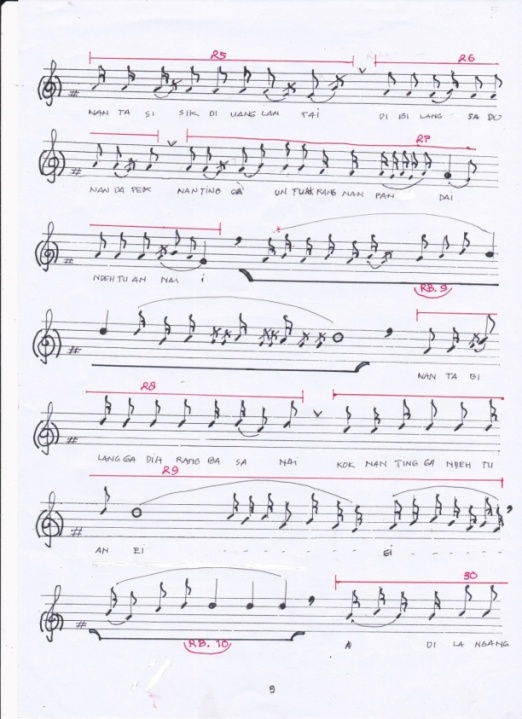 25 26
NAN TA SI SIK DI UANG LAN TAI DI BI LANG SA DO
27
NAN DA PEK NAN TING GA UN TUAK RANG NAN PAN DAI
NDEH TU AN NAI i
RB. 9
NAN TA BI
28
LANG GA DIA RANG BA SA NAI KOK NAN TING GA NDEH TU
29
AN EI - - - - - - - - EI - - - - -
30
RB. 10 A DI LA NGANG